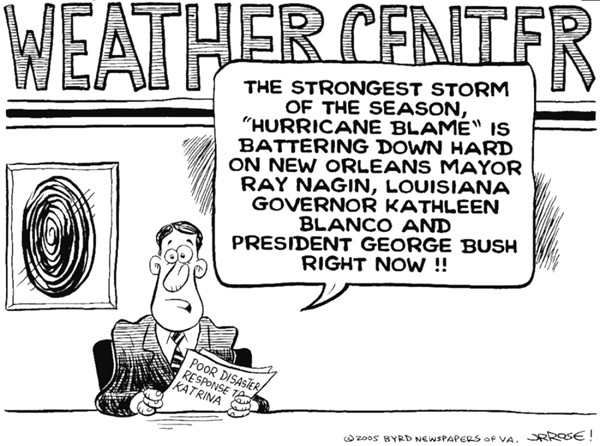 WEATHER CENTER
THE STRONGEST STORM
OF THE SEASON,
"HURRICANE BLAME" IS
BATTERING DOWN HARD
ON NEW ORLEANS MAYOR
RAY NAGIN, LOUISIANA
GOVERNOR KATHLEEN
BLANCO AND
PRESIDENT GEORGE BUSH
RIGHT NOW !!
POOR DISASTER
RESPONSE TO
KATRINA
©2005 BYRD NEWSPAPERS OF VA. JRROSE!